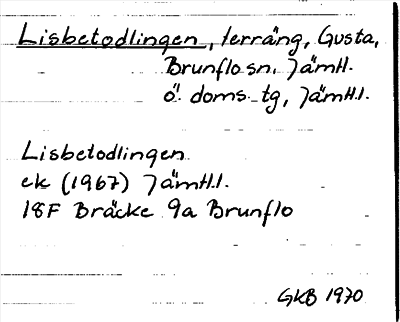 Lisbetodlingen, terräng, Gusta,
Brunflo sn. Jämtl.
ö. doms. tg, Jämtl.l.
Lisbetodlingen
ek (1967) Jämtl.l.
18F Bräcke 9a Brunflo
GKB 1970